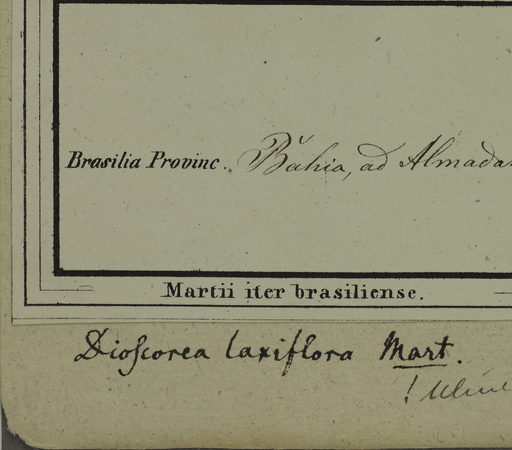 Brasilia Provinc. Bahia, ad Almada
Martii iter brasiliense.
Dioscorea laxiflora Mart.
! Uline